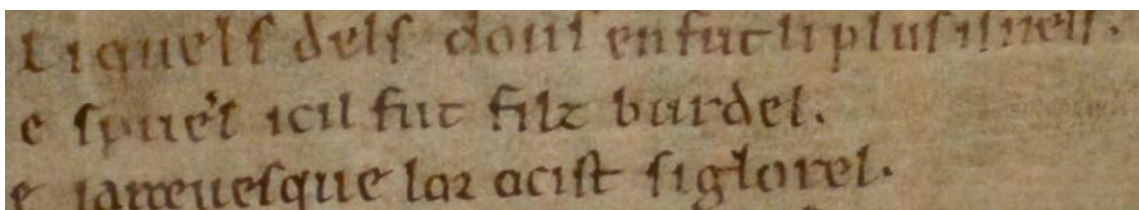 Liquels dels dous en fut li plus isnels.
e spue's icil fut filz burdel.
e larceuesque lor ocist siglorel.